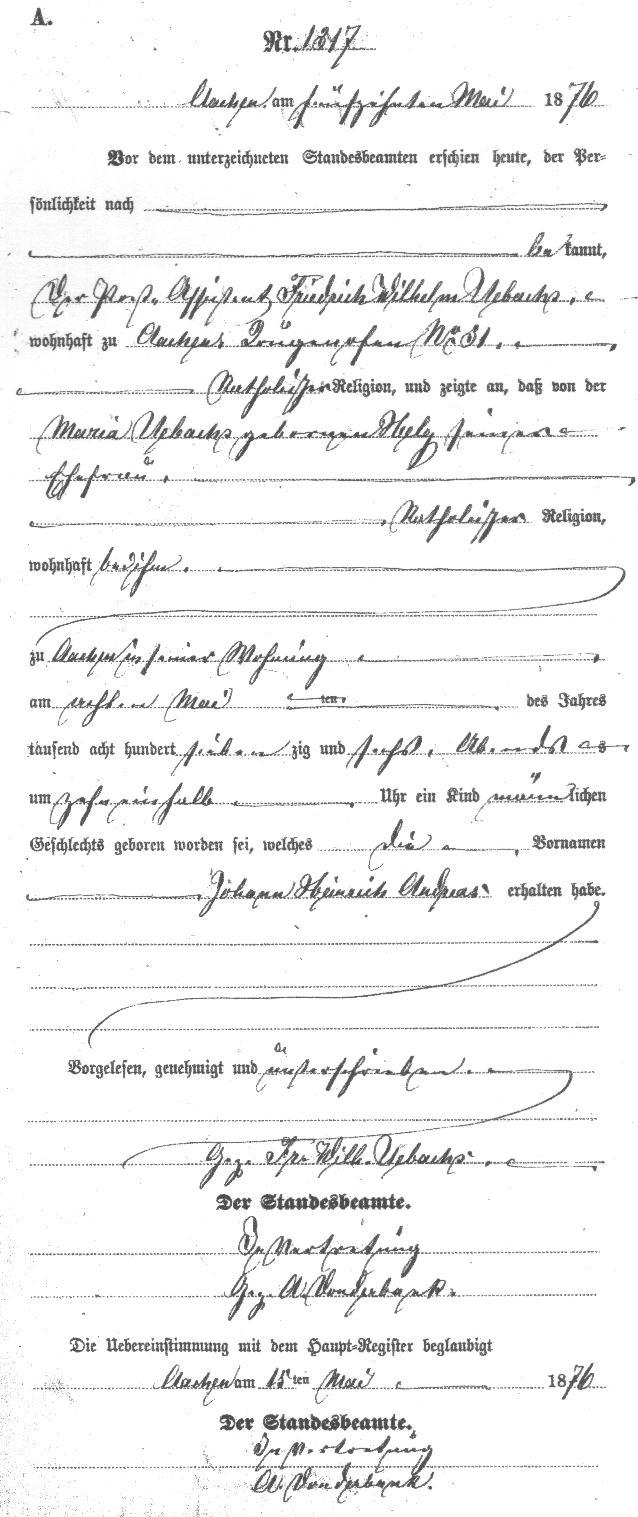 A.
Nr. 1317
Aachen am fünfzehnten Mai 1876
Vor dem unterzeichneten Standesbeamten erschien heute, der Per-
sönlichkeit nach
bekannt,
Der Post-Assistent Friedrich Wilhelm Uebachs,
wohnhaft zu Aachen, No 31.
Katholischer Religion, und zeigte an, daß von der
Maria Uebachs geborenen seiner
Ehefrau,
Katholischer Religion,
wohnhaft bei ihm.
zu Aachen in seiner Wohnung
am achten Mai ten des Jahres
tausend acht hundert sieben zig und sechs, Abends
um zehneinhalb Uhr ein Kind männlichen
Geschlechts geboren worden sei, welches die Vornamen
Johann Heinrich Andreas erhalten habe.
Vorgelesen, genehmigt und unterschrieben.
Gez. Fr. Wilh. Uebachs.
Der Standesbeamte.
In Vertretung
Gez. A. Vonderbank.
Die Uebereinstimmung mit dem Haupt-Register beglaubigt
Aachen am 15 ten Mai 1876
Der Standesbeamte.
In Vertretung
A. Vonderbank.